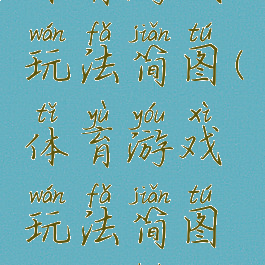 wán fǎ jiǎn tú
玩法简图(
tǐ yù yóu xì
体育游戏
wán fǎ jiǎn tú
玩法简图